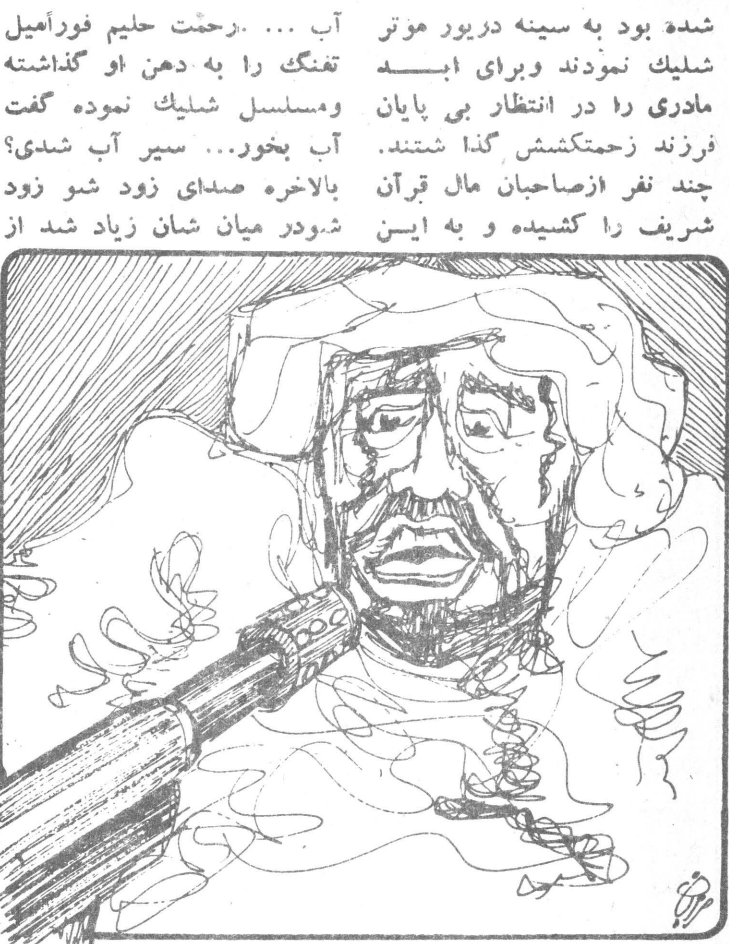 شده بود به سینه دریور موتر
شلیك نمودند وبرای ابـــد
مادری را در انتظار بی پایان
فرزند زحمتکشش گذا شتند.
چند نفر ازصاحبان مال قرآن
شریف را کشیده و به ایـن
آب ... .رحمت حلیم فورآمیل
تفنگ را به دهن او گذاشته
ومسلسل شلیك نموده گفت
آب بخور... سیر آب شدی؟
بالاخره صدای زود شو زود
شودر میان شان زیاد شد از